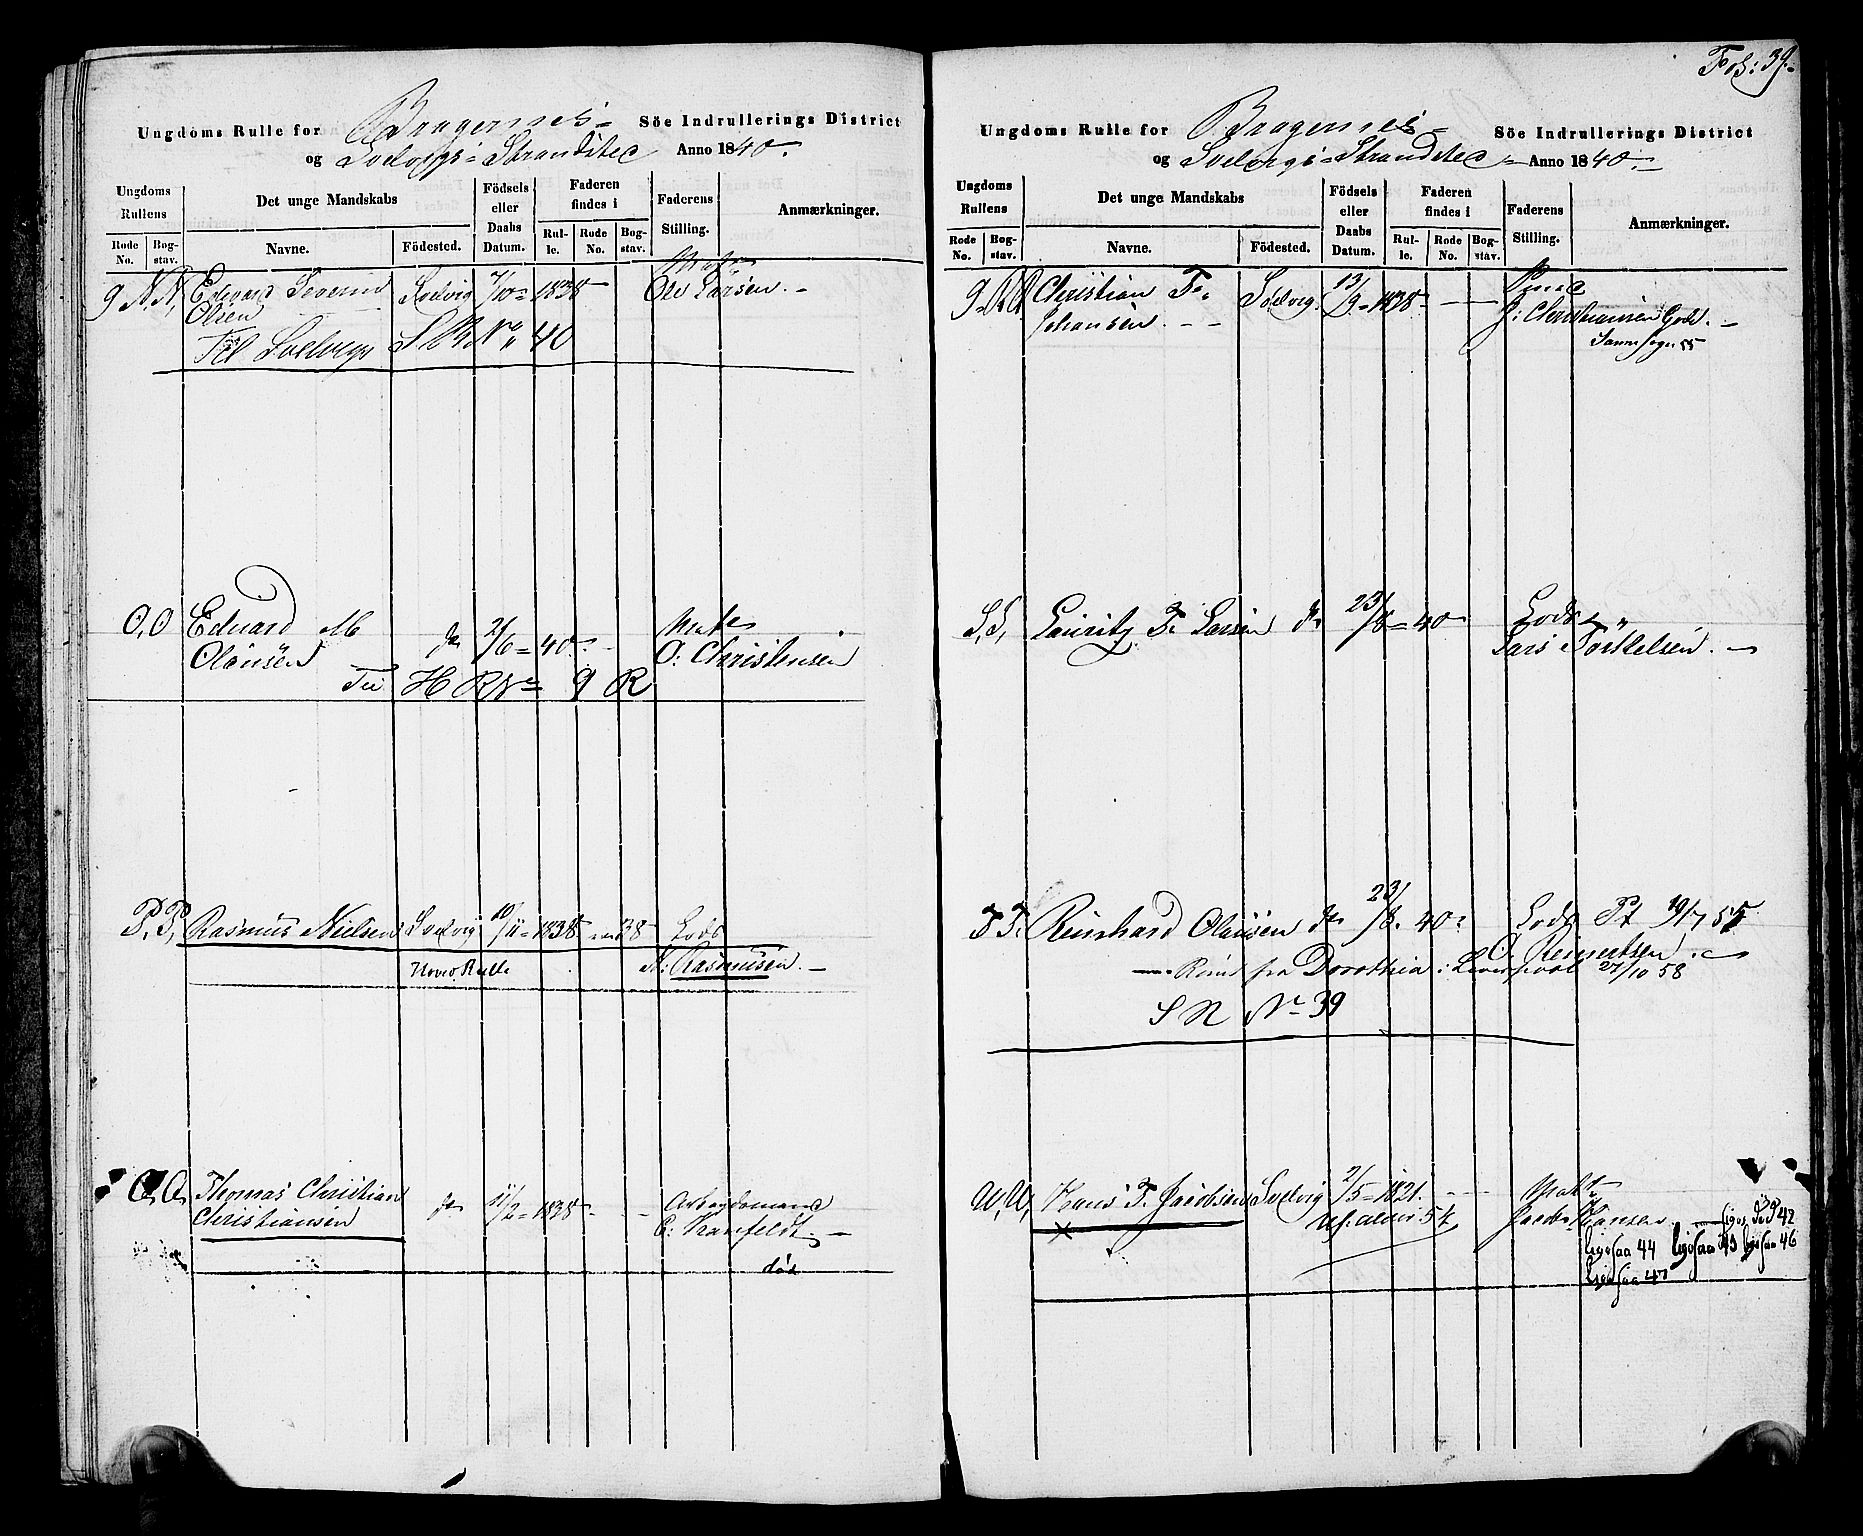 Fol: 39.
Ungdoms Rulle for Bragernes Söe Indrullerings District
og Svelvigs Strandsted Anno 1840.
Ungdoms Rullens
Det unge Mandskabs
Födsels eller Daabs Datum.
Faderen findes i
Faderens Stilling.
Anmærkninger.
Rode No.
Bogstav.
Navne.
Födested.
Rulle.
Rode No.
Bogstav.
9 NN, Edvard Severin Svelvig 7/10 = 1838 -
Olsen Ole Larsen. -
Til Svelvigs No 40
O,O Eduard M
Olausen do 2/6 = 40 - O: Christensen
Til H R No 9 R
P,P, Rasmus Nielsen Svelvig 10/11 = 1838 38 Lods
Hoved Rulle N: Rasmussen. -
Q,Q, Thomas Christian do 11/2 = 1838 - Arbeydsmand
Christiansen
död
Ungdoms Rulle for Bragernes Söe Indrullerings District
og Svelvigs Strandsted Anno 1840.
Ungdoms Rullens
Det unge Mandskabs
Födsels eller Daabs Datum.
Faderen findes i
Faderens Stilling.
Anmærkninger.
Rode No.
Bogstav.
Navne.
Födested.
Rulle.
Rode No.
Bogstav.
9 RR Christian F. Svelvig. 13/9 = 1838 -
Johansen. - - J: Christiansen
S,S, Lauritz F. Larsen do 23/8 = 40 - Lods
Lars Torkelsen. -
T T. Reinhard Olausen do 23/8. 40 - Lods Pt 19/7 55
O. Reinertsen
Römt fra Dorothea i Liverpool 27/10 58
S R No 39
U,U, Hans F. Jacobsen Svelvig 2/5 = 1821. - - -
Jacob Hansen ligesaa 42
ligesaa 44 ligesaa 43 ligesaa 46
ligesaa 47